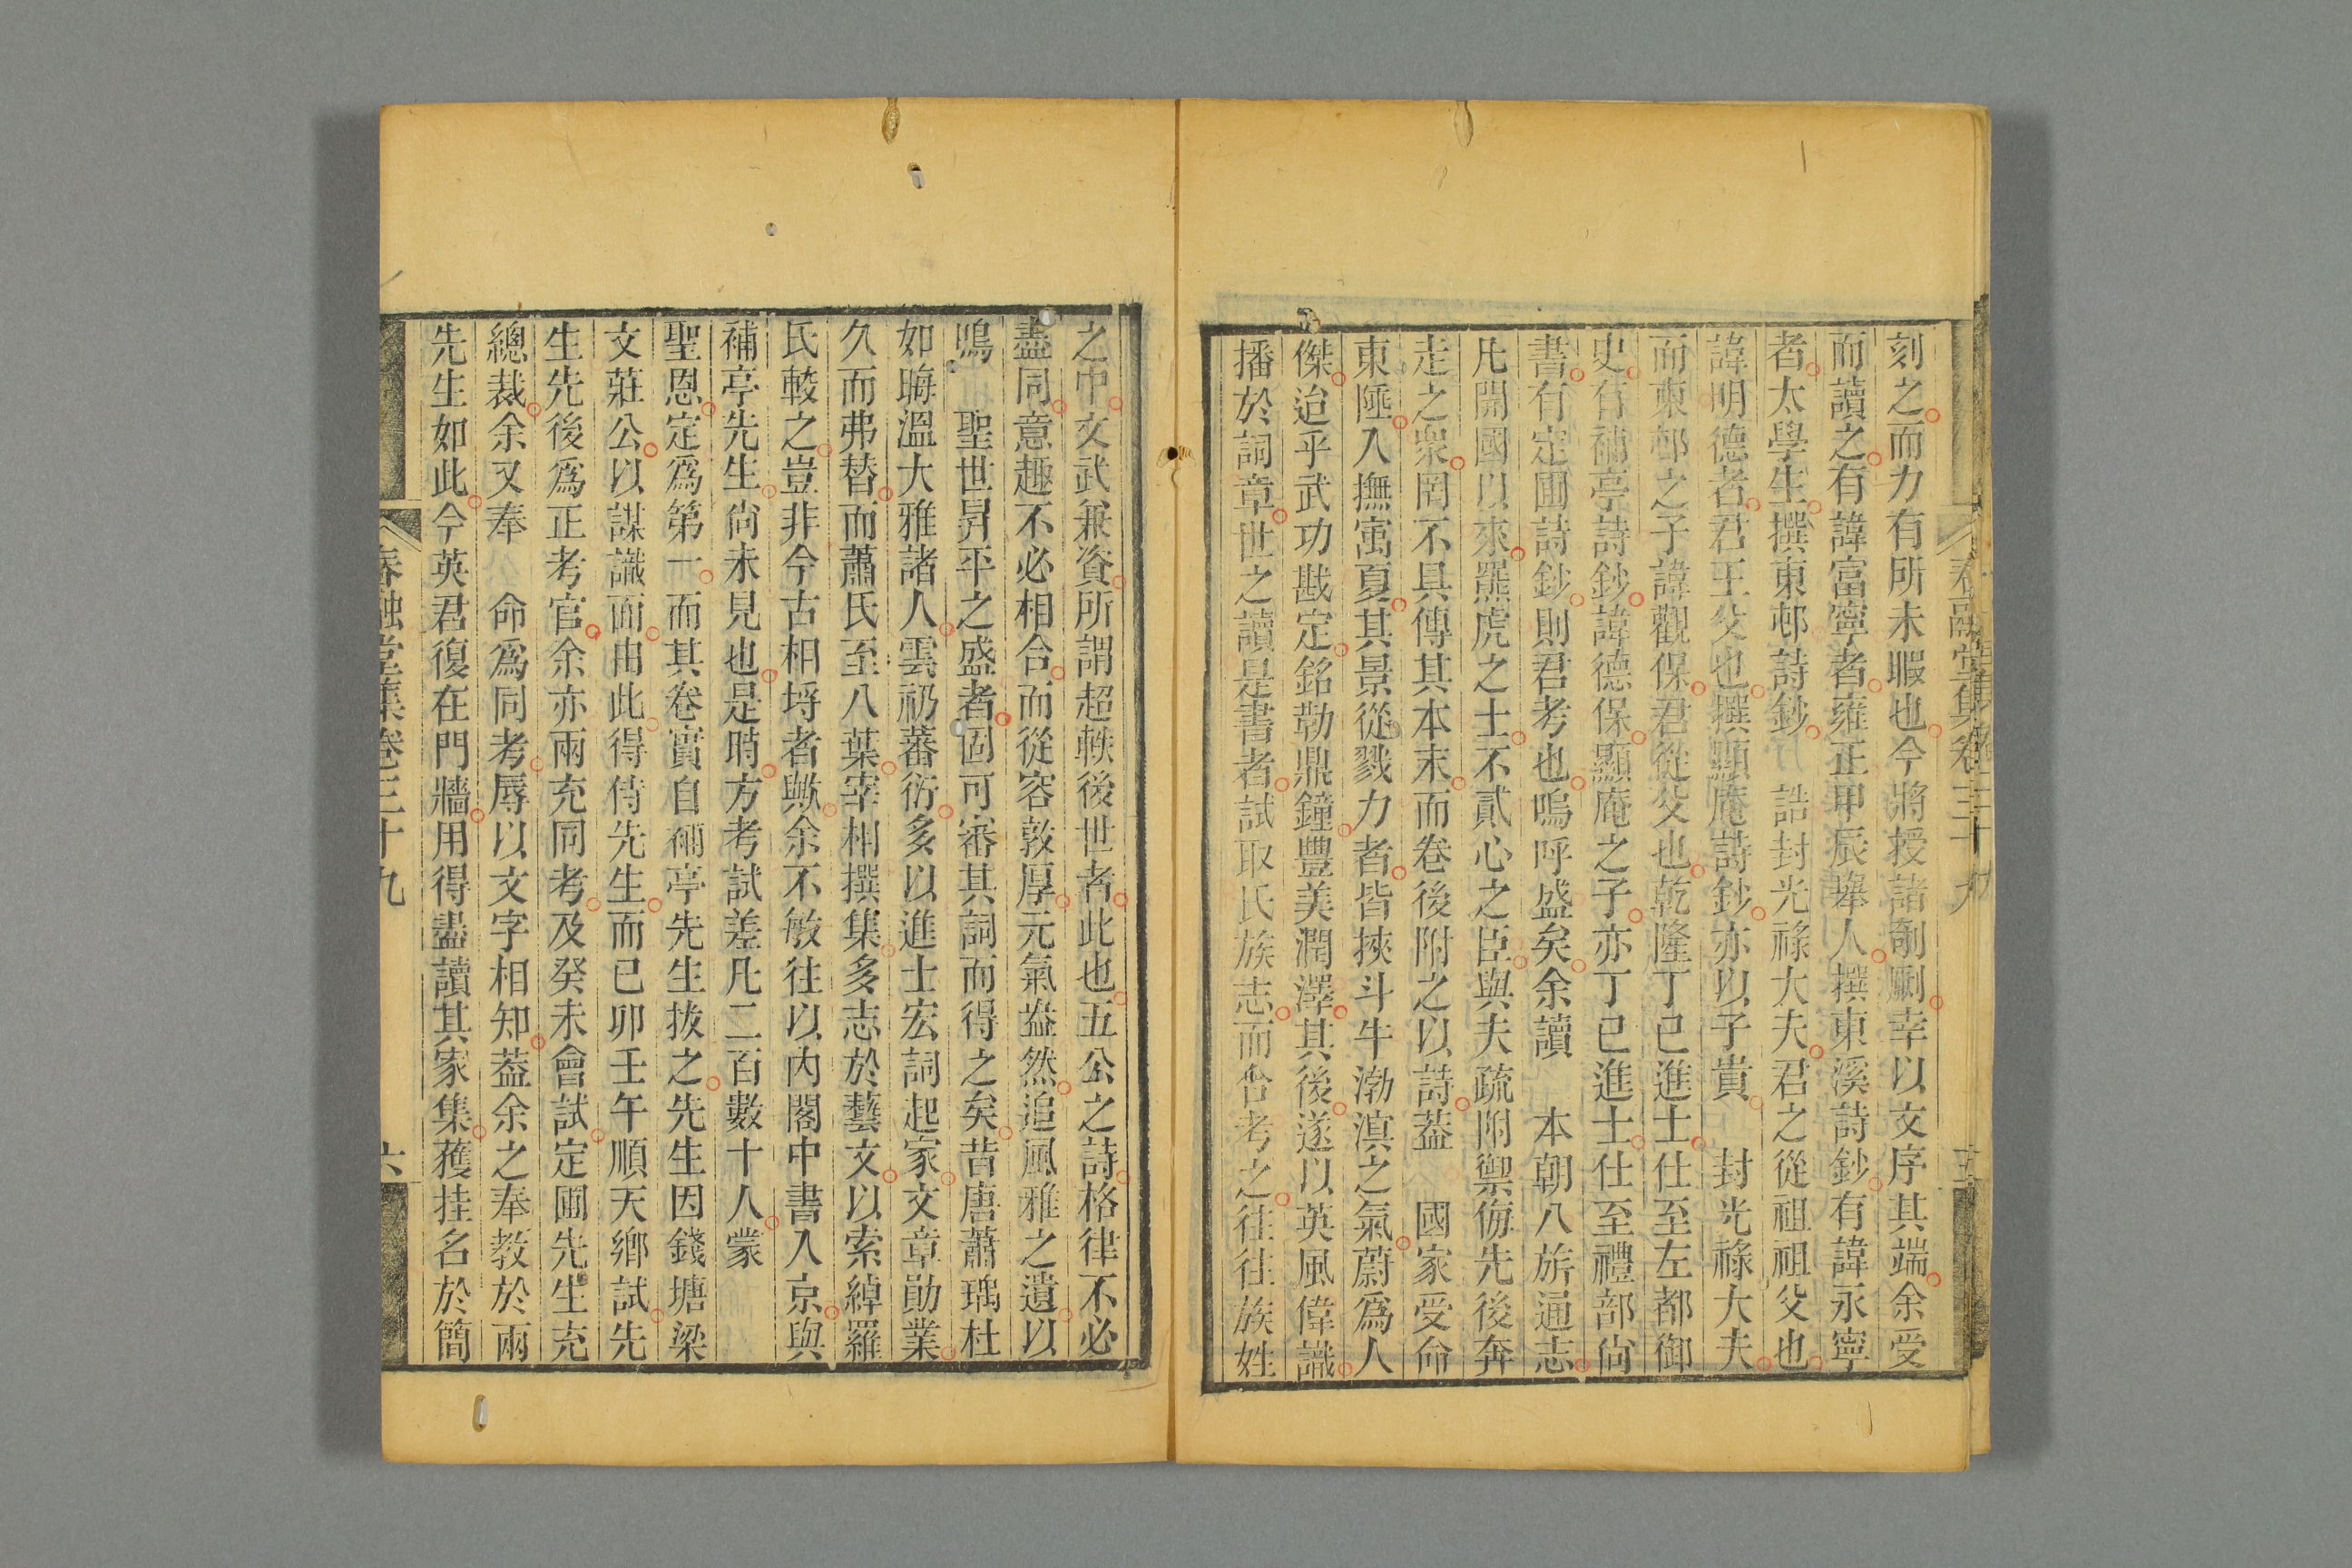 刻之而力有所未暇也今將授諸剞劂幸以文序其端余受
而讀之有諱富寧者雍正甲辰舉人撰東溪詩鈔有諱永寧
者太學生撰東邨詩鈔 誥封光祿大夫君之從祖祖父也
諱明德者君王父也撰顯庵詩鈔亦以子貴 封光祿大夫
而東邨之子諱觀保君從父也乾隆丁巳進士仕至左都御
史有補亭詩鈔諱德保顯庵之子亦丁巳進士仕至禮部尚
書有定圃詩鈔則君考也嗚呼盛矣余讀 本朝八旂通志
凡開國以來羆虎之士不貳心之臣與夫疏附禦侮先後奔
走之衆罔不具傳其本末而卷後附之以詩葢 國家受命
東陲入撫寓夏其景從戮力者皆挾斗牛渤溟之氣蔚爲人
傑迨乎武功戡定銘勒鼎鐘豐美潤澤其後遂以英風偉識
播於詞章世之讀是書者試取氏族志而合考之往往族姓
之中文武兼資所謂超軼後世者此也五公之詩格律不必
盡同意趣不必相合而從容敦厚元氣盎然追風雅之遺以
鳴 聖世昇平之盛者固可審其詞而得之矣昔唐蕭瑀杜
如晦溫大雅諸人雲礽蕃衍多以進士宏詞起家文章勛業
久而弗替而蕭氏至八葉宰相撰集多志於藝文以索綽羅
氏較之豈非今古相埒者歟余不敏往以內閣中書入京與
補亭先生尚未見也是時方考試差凡二百數十人蒙
聖恩定爲第一而其卷實自補亭先生拔之先生因錢塘梁
文莊公以謀識面由此得侍先生而己卯壬午順天鄉試先
生先後爲正考官余亦兩充同考及癸未會試定圃先生充
總裁余又奉 命爲同考辱以文字相知葢余之奉教於兩
先生如此今英君復在門牆用得盡讀其家集獲挂名於簡
春融堂集卷三十九 六